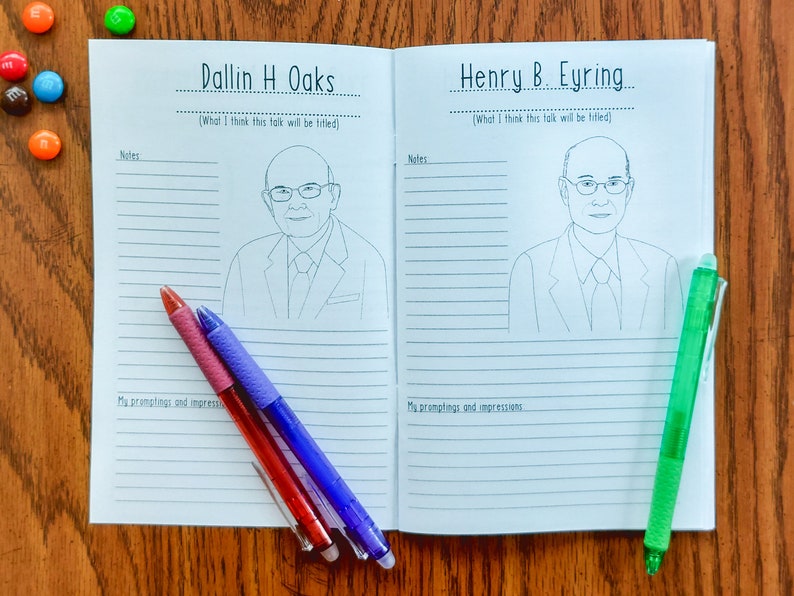 Dallin H Oaks
(What I think this talk will be titled)
Notes:
My promptings and impressions
Henry B. Eyring
(What I think this talk will be titled)
Notes
My promptings and impressions:
m